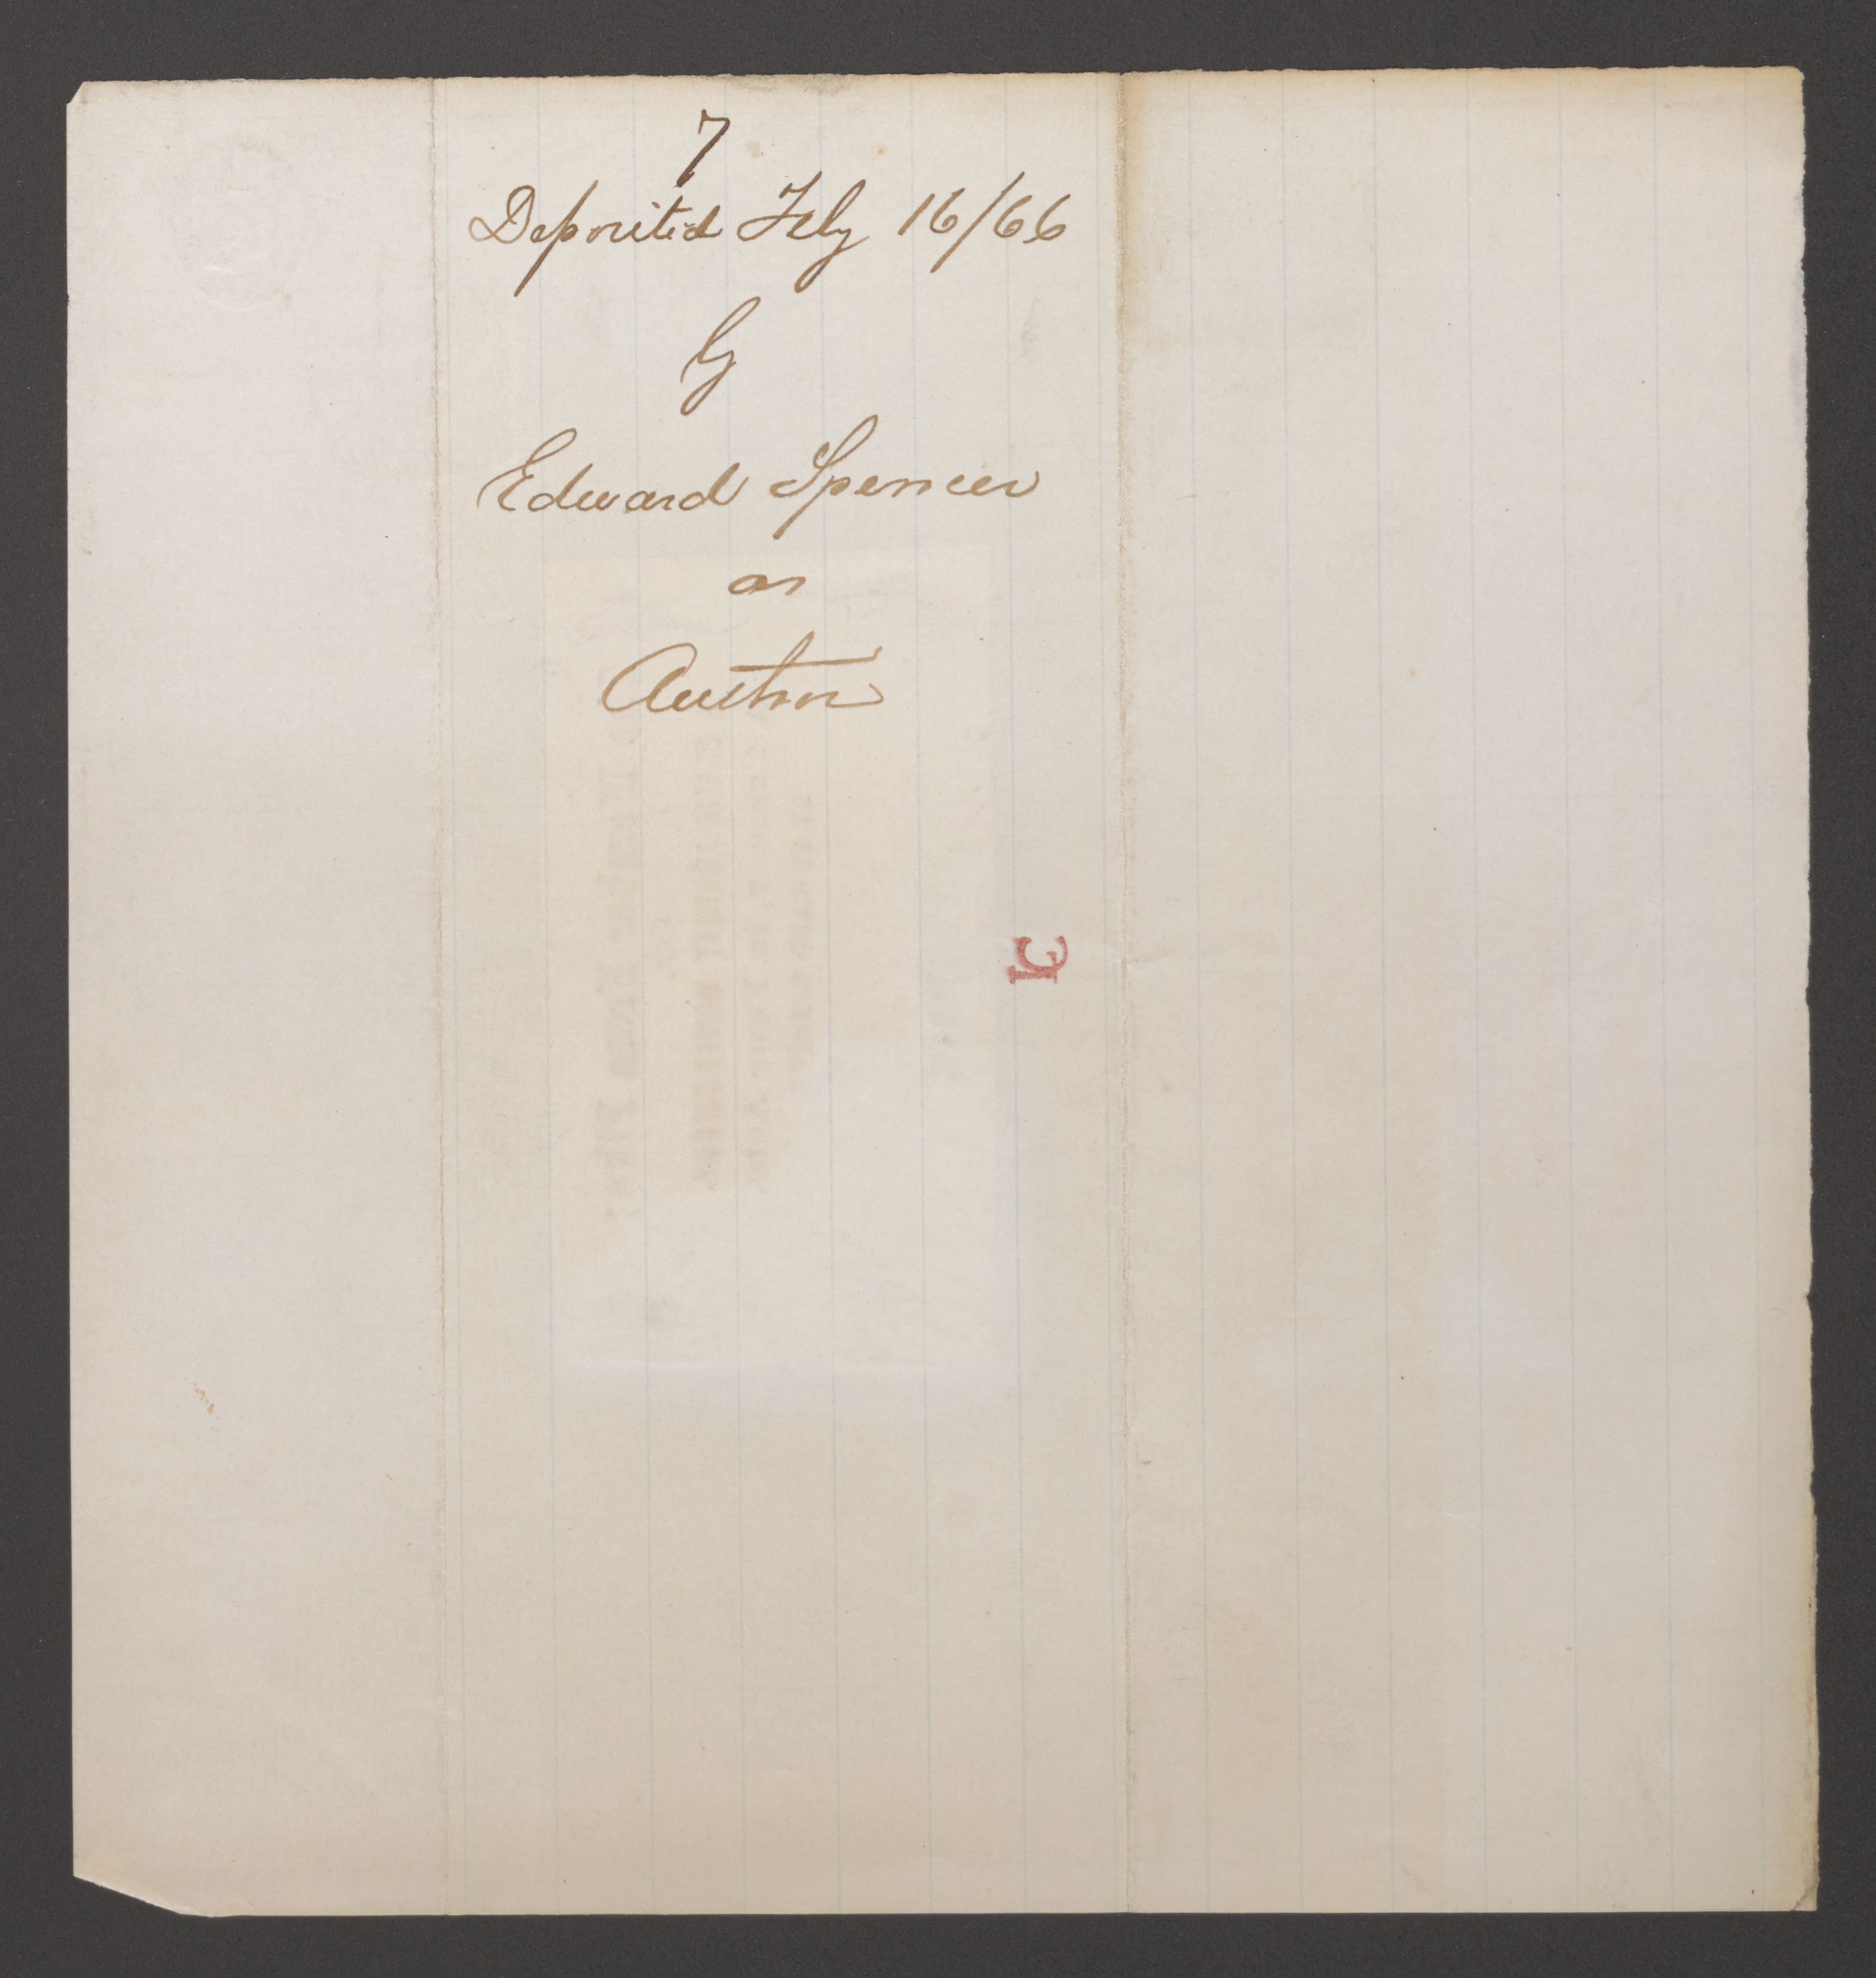 7
Deposited Feby 16/66
by
Edward Spencer
as
Author